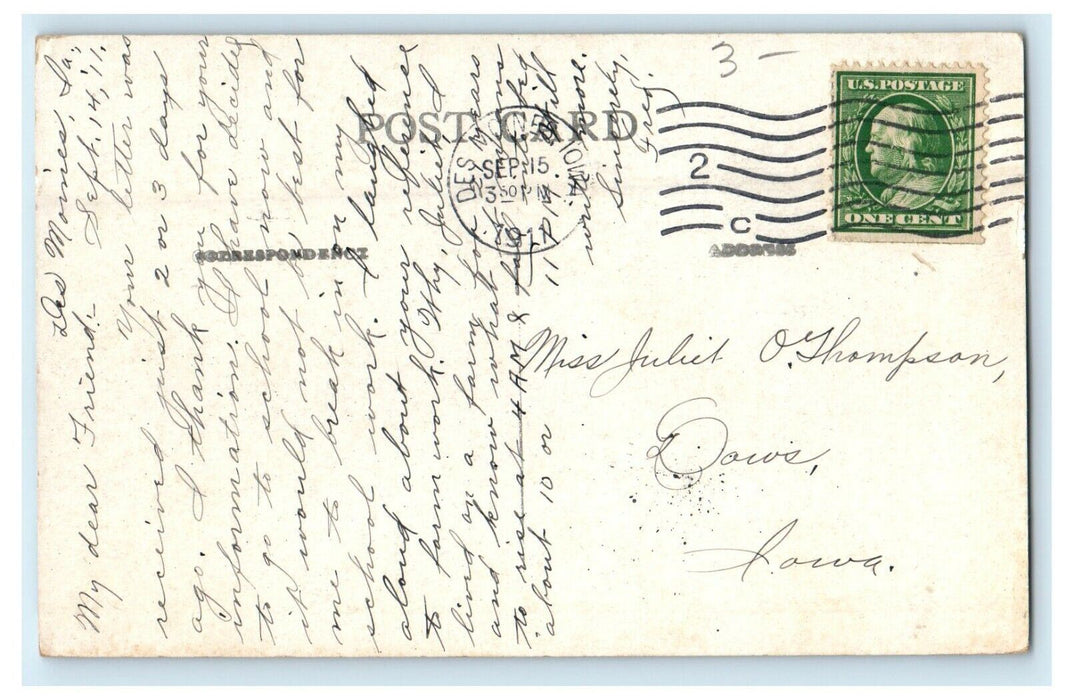 3 -
U.S. POSTAGE
ONE CENT
POST CARD
DES MOINES IOWA
SEP 15
3 30 PM
1911
2
C
CORRESPONDENCE
ADDRESS
Des Moines, Ia;
Sept. 14, '11.
My dear Friend:-
Your letter was
received just 2 or 3 days
ago. I thank you for your
information. I have decided
to go to school now and
it would not be best for
me to break in on my
school work. I laughed
aloud about your reference
to farm work. Why, Juliet I
lived on a farm for years
and know what
to rise at 4 AM &
about 10 or 11 PM. Will
write more.
Sincerely,
Fred.
Miss Juliet O. Thompson,
Dows,
Iowa.